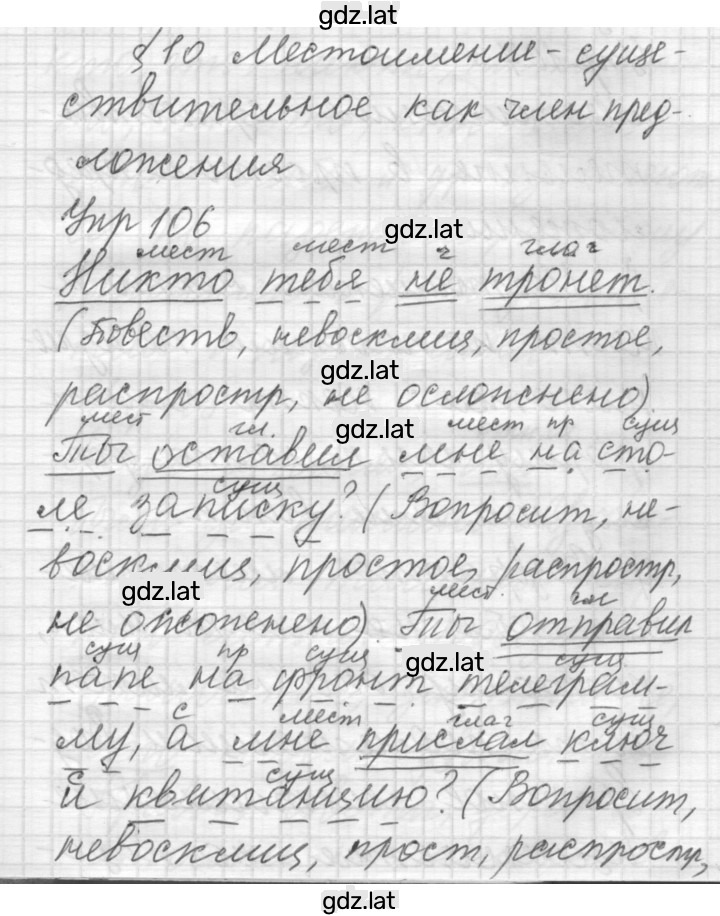 gdz.lat
§10 Местоимение-суще-
ствительное как член пред-
ложения
Упр 106
gdz.lat
мест мест ч глаг
Никто тебя не тронет.
(Повеств, невосклиц, простое,
gdz.lat
распростр, не осложнено)
мест гл. gdz.lat мест пр сущ
Ты оставил мне на сто-
сущ
ле записку? (Вопросит, не-
восклиц, простое, распростр,
gdz.lat мест. гл
не осложнено). Ты отправил
сущ пр сущ gdz.lat сущ
папе на фронт телеграм-
с мест глаг сущ
му, а мне прислал ключ
с сущ
и квитанцию? (Вопросит,
невосклиц, прост, распростр,
gdz.lat